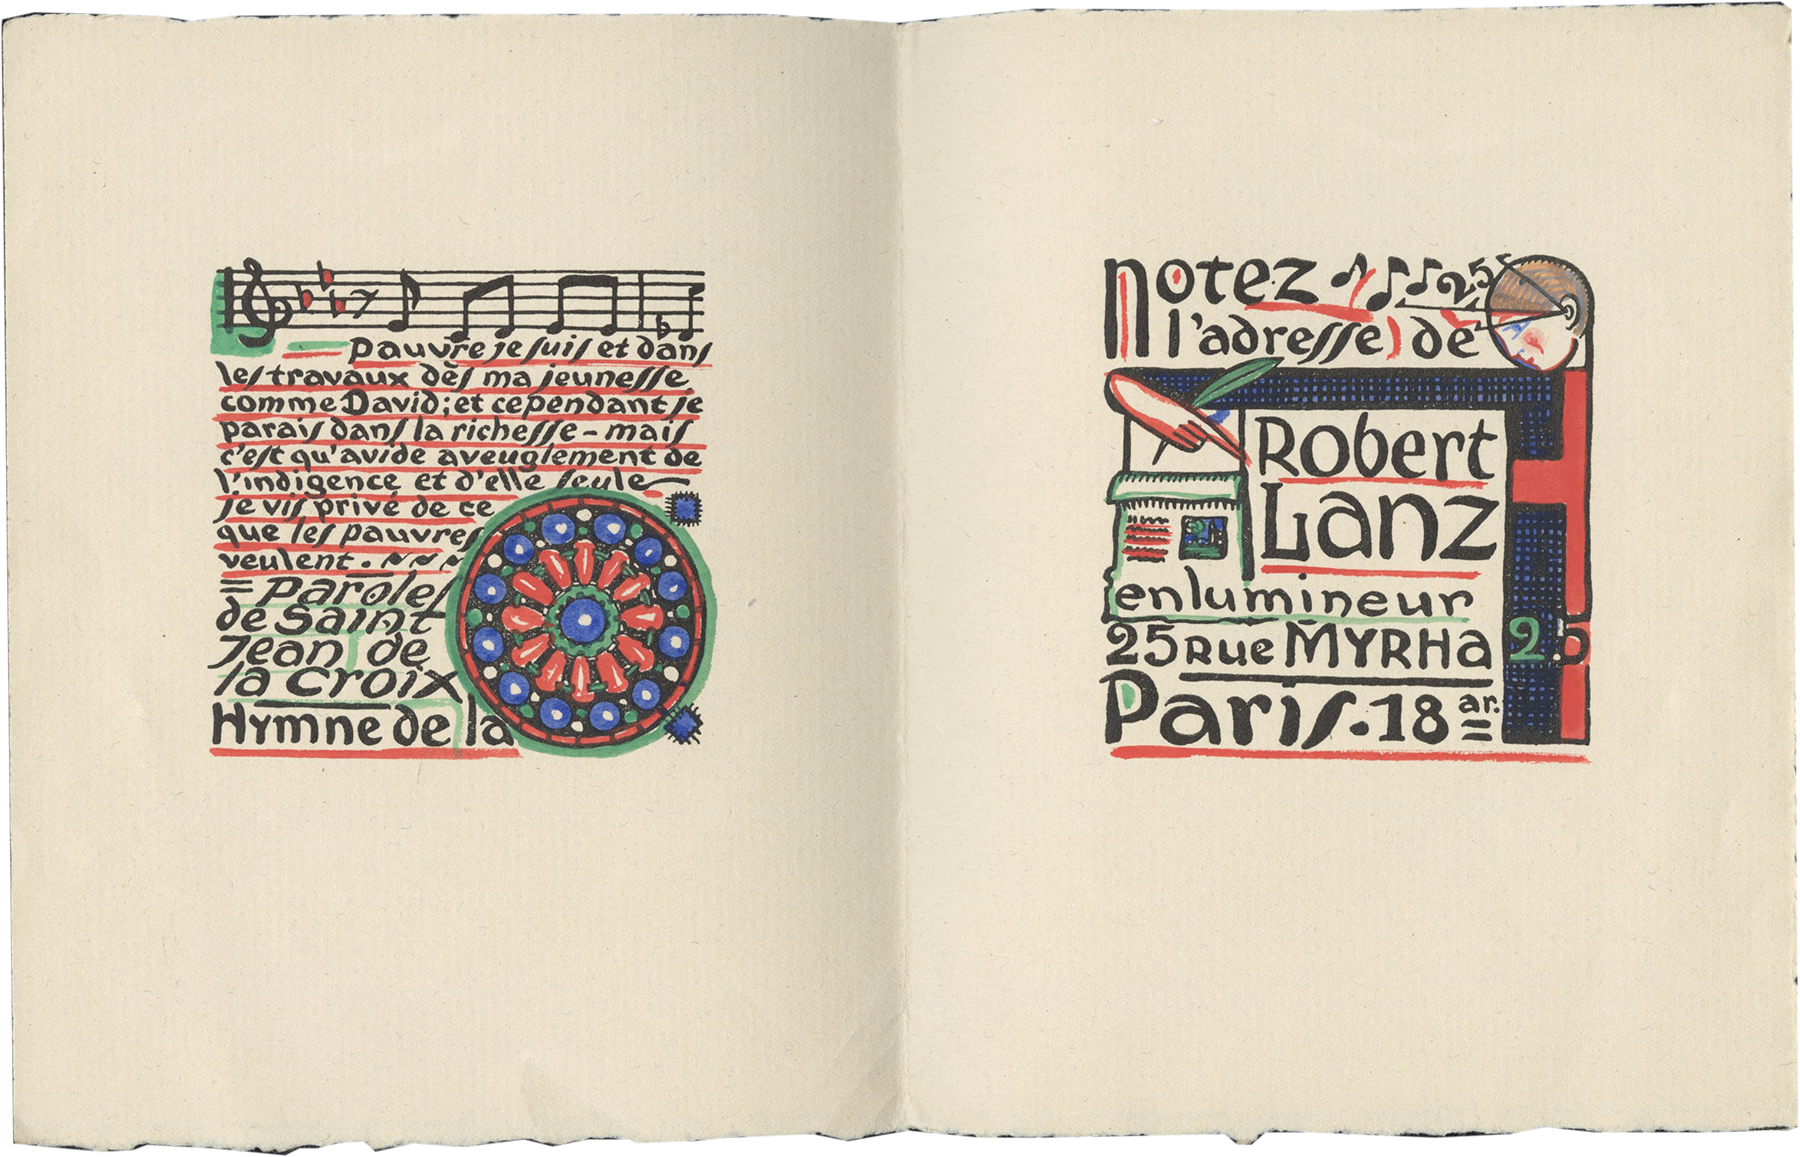 pauvre je suis et dans
les travaux dès ma jeunesse
comme David; et cependant je
parais dans la richesse - mais
c'est qu'avide aveuglement de
l'indigence et d'elle seule
je vis privé de ce
que les pauvres
veulent.
= Paroles
de Saint
Jean de
la croix
Hymne de la
notez 25
l'adresse de
Robert
Lanz
enlumineur
25 Rue MYRHa 25
Paris. 18 ar.